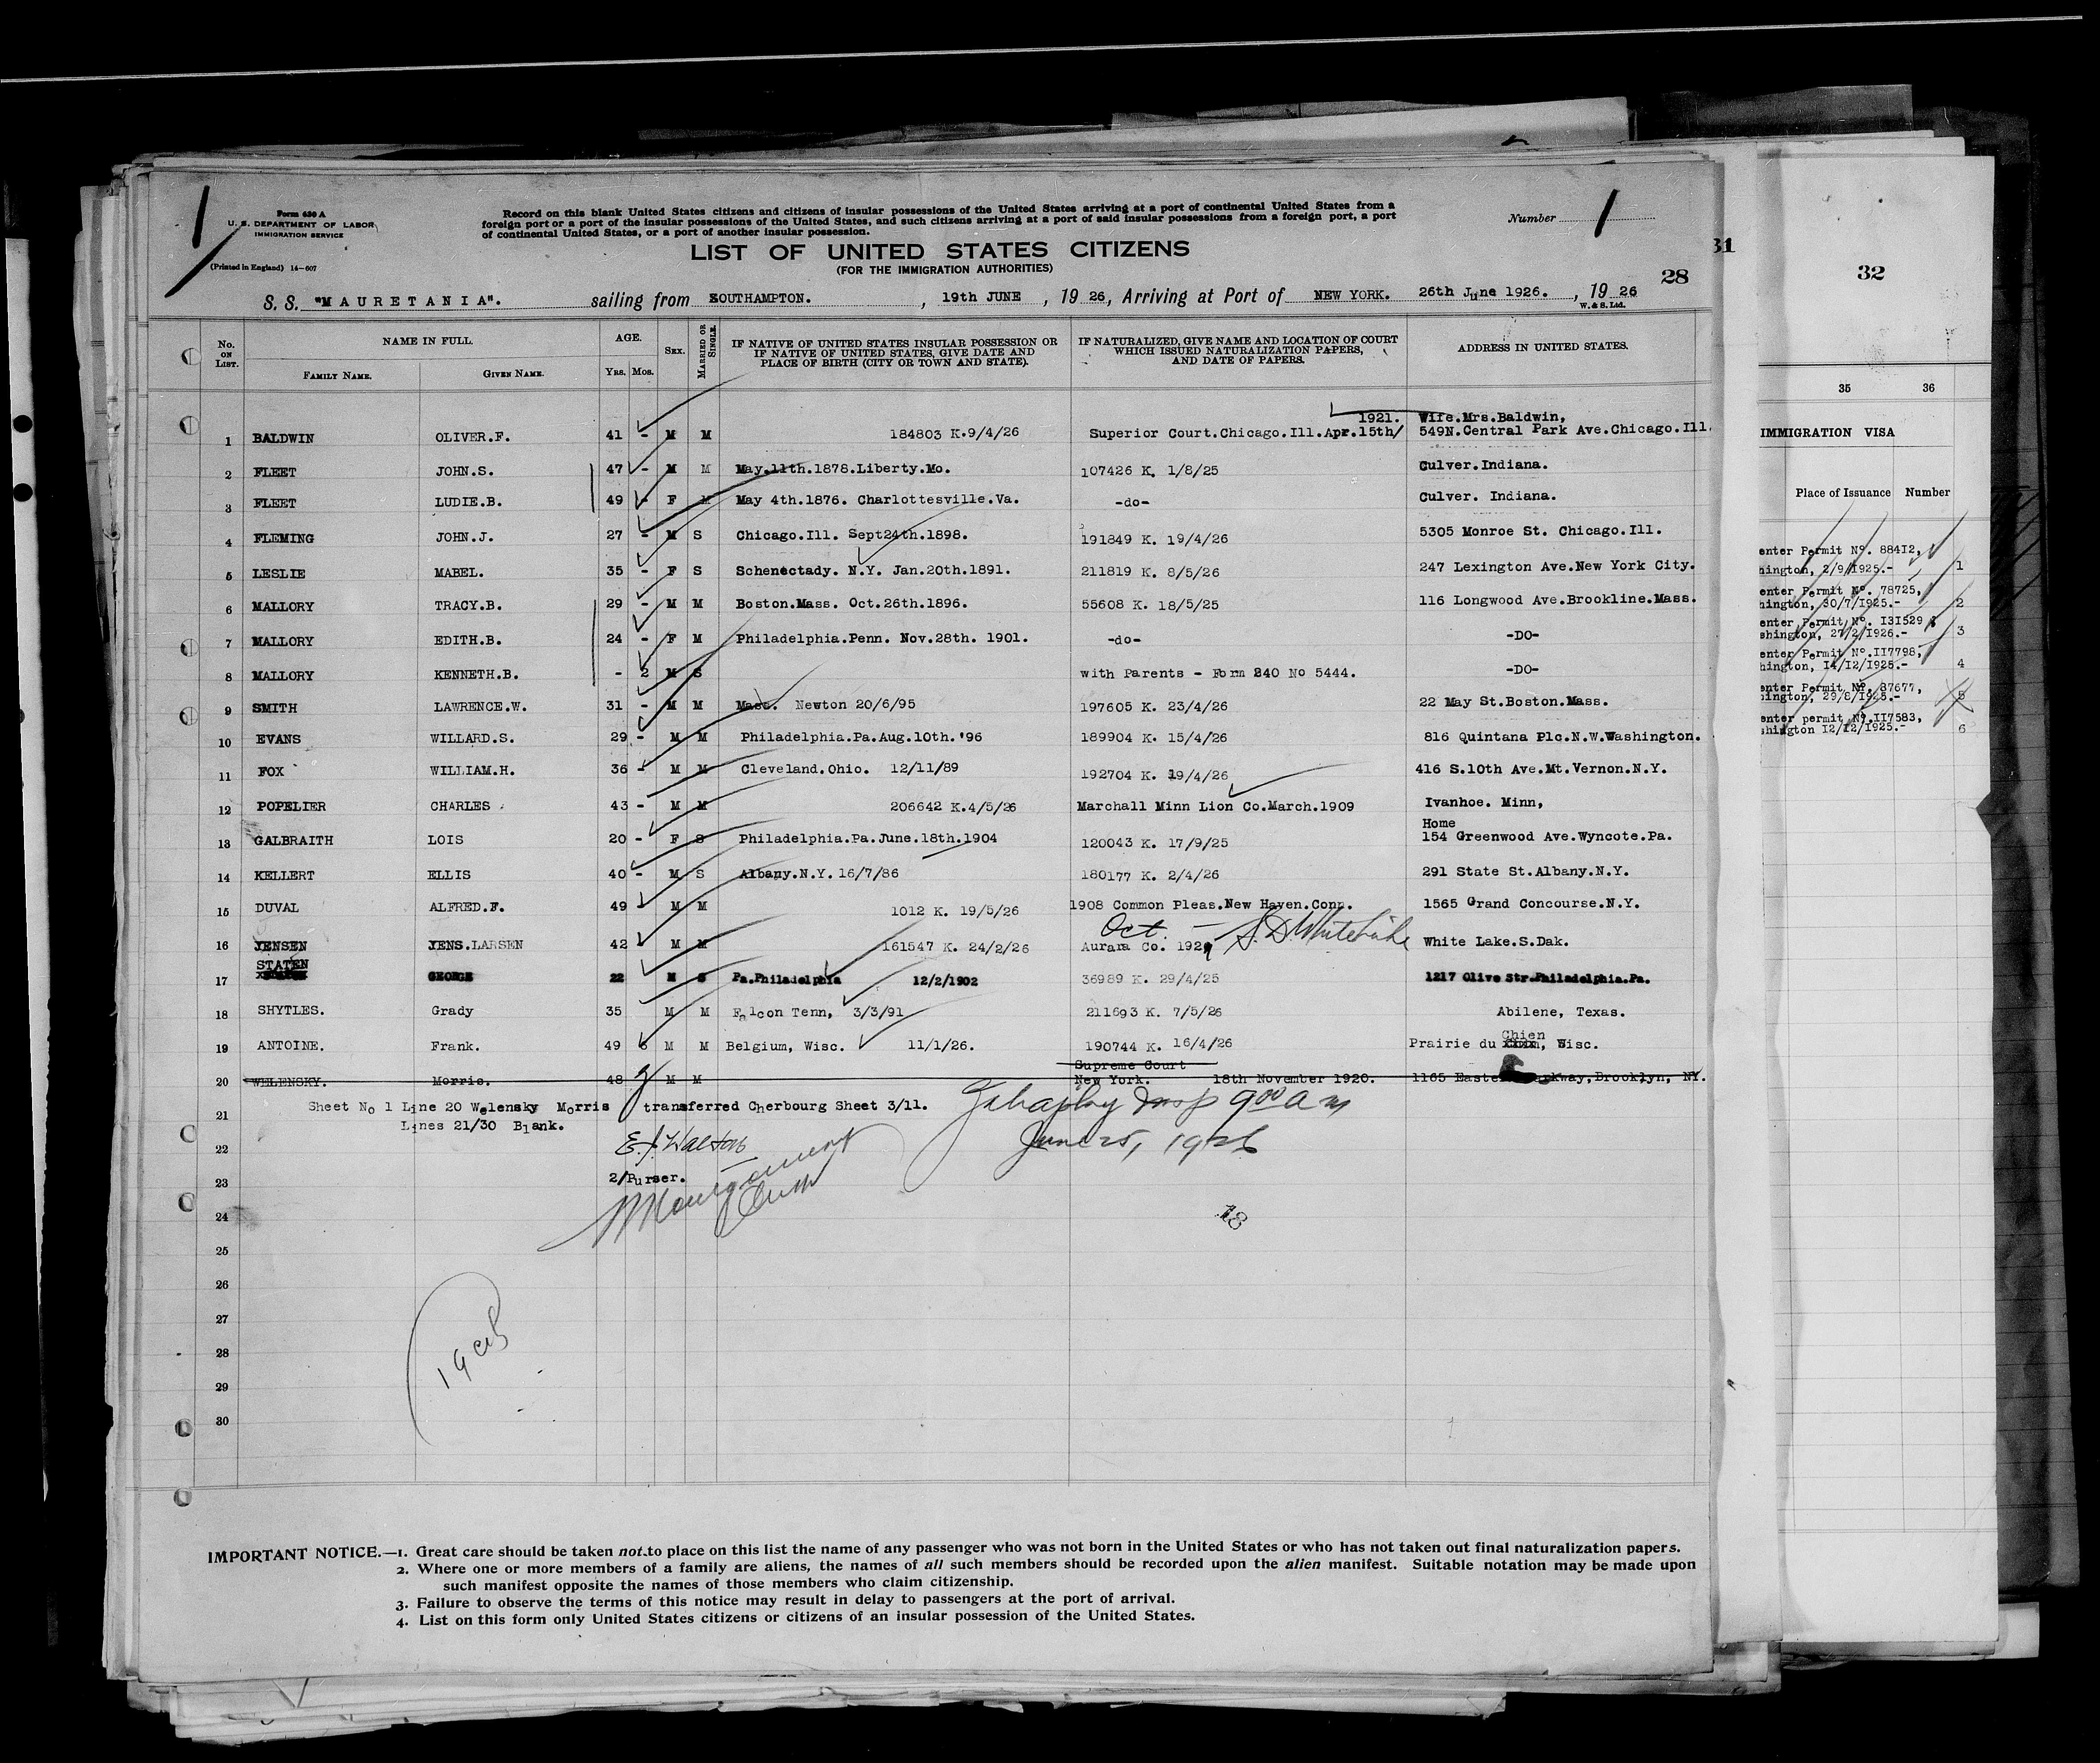 Form 630 A
U. S. DEPARTMENT OF LABOR
IMMIGRATION SERVICE
(Printed in England) 14—607
Record on this blank United States citizens and citizens of insular possessions of the United States arriving at a port of continental United States from a
foreign port or a port of the insular possessions of the United States, and such citizens arriving at a port of said insular possessions from a foreign port, a port
of continental United States, or a port of another insular possession.
Number 1
LIST OF UNITED STATES CITIZENS
(FOR THE IMMIGRATION AUTHORITIES)
31
32
28
S. S. "MAURETANIA". sailing from SOUTHAMPTON. , 19th JUNE , 19 26, Arriving at Port of NEW YORK. 26th June 1926. , 19 26
W. & S. Ltd.
No. ON LIST. NAME IN FULL. AGE. SEX. MARRIED OR SINGLE. IF NATIVE OF UNITED STATES INSULAR POSSESSION OR IF NATIVE OF UNITED STATES, GIVE DATE AND PLACE OF BIRTH (CITY OR TOWN AND STATE). IF NATURALIZED, GIVE NAME AND LOCATION OF COURT WHICH ISSUED NATURALIZATION PAPERS, AND DATE OF PAPERS. ADDRESS IN UNITED STATES.
FAMILY NAME. GIVEN NAME. YRS. MOS.
1921. Wife.Mrs.Baldwin,
1 BALDWIN OLIVER.F. 41 - M M 184803 K.9/4/26 Superior Court.Chicago.Ill.Apr.15th/ 549N.Central Park Ave.Chicago.Ill.
2 FLEET JOHN.S. 47 - M M May.11th.1878.Liberty.Mo. 107426 K. 1/8/25 Culver.Indiana.
3 FLEET LUDIE.B. 49 - F M May 4th.1876. Charlottesville.Va. -do- Culver. Indiana.
4 FLEMING JOHN.J. 27 - M S Chicago.Ill. Sept24th.1898. 191849 K. 19/4/26 5305 Monroe St. Chicago.Ill.
5 LESLIE MABEL. 35 - F S Schenectady. N.Y. Jan.20th.1891. 211819 K. 8/5/26 247 Lexington Ave.New York City.
6 MALLORY TRACY.B. 29 - M M Boston.Mass. Oct.26th.1896. 55608 K. 18/5/25 116 Longwood Ave.Brookline.Mass.
7 MALLORY EDITH.B. 24 - F M Philadelphia.Penn. Nov.28th. 1901. -do- -DO-
8 MALLORY KENNETH.B. - 2 M S with Parents - Form 240 No 5444. -DO-
9 SMITH LAWRENCE.W. 31 - M M Mass. Newton 20/6/95 197605 K. 23/4/26 22 May St.Boston.Mass.
10 EVANS WILLARD.S. 29 - M M Philadelphia.Pa.Aug.10th.'96 189904 K. 15/4/26 816 Quintana Plc.N.W.Washington.
11 FOX WILLIAM.H. 36 - M M Cleveland.Ohio. 12/11/89 192704 K. 19/4/26 416 S.10th Ave.Mt.Vernon.N.Y.
12 POPELIER CHARLES 43 - M M 206642 K.4/5/26 Marchall Minn Lion Co.March.1909 Ivanhoe. Minn,
Home
13 GALBRAITH LOIS 20 - F S Philadelphia.Pa.June.18th.1904 120043 K. 17/9/25 154 Greenwood Ave.Wyncote.Pa.
14 KELLERT ELLIS 40 - M S Albany.N.Y. 16/7/86 180177 K. 2/4/26 291 State St.Albany.N.Y.
15 DUVAL ALFRED.F. 49 M M 1012 K. 19/5/26 1908 Common Pleas.New Haven.Conn. 1565 Grand Concourse.N.Y.
Oct. —
16 JENSEN JENS.LARSEN 42 M M 161547 K. 24/2/26 Aurara Co. White Lake.S.Dak.
STATEN
17 GEORGE 22 M S Pa.Philadelphia 12/2/1902 36989 K. 29/4/25 1217 Olive Str.Philadelphia.Pa.
18 SHYTLES. Grady 35 M M Falcon Tenn, 3/3/91 211693 K. 7/5/26 Abilene, Texas.
Chien
19 ANTOINE. Frank. 49 6 M M Belgium, Wisc. 11/1/26. 190744 K. 16/4/26 Prairie du , Wisc.
Supreme Court
20 WELENSKY. Morris. 48 M M New York. 18th November 1920. 1165 Eastern Parkway,Brooklyn, NY.
21 Sheet No 1 Line 20 Welensky Morris transferred Cherbourg Sheet 3/11.
Lines 21/30 Blank.
insp 9 00 a m
June 25, 1926
22 E.J. Walton
23 2/Purser.
24 18
25
26
27
28
29
30
IMPORTANT NOTICE.—1. Great care should be taken not to place on this list the name of any passenger who was not born in the United States or who has not taken out final naturalization papers.
2. Where one or more members of a family are aliens, the names of all such members should be recorded upon the alien manifest. Suitable notation may be made upon
such manifest opposite the names of those members who claim citizenship.
3. Failure to observe the terms of this notice may result in delay to passengers at the port of arrival.
4. List on this form only United States citizens or citizens of an insular possession of the United States.
35 36
IMMIGRATION VISA
Place of Issuance Number
enter Permit Nº. 88412,
hington, 2/9/1925.- 1
enter Permit Nº. 78725,
hington, 30/7/1925.- 2
enter Permit Nº. 131529
shington, 27/2/1926.- 3
enter Permit Nº.117798,
hington, 14/12/1925.- 4
enter Permit Nº. 87677,
hington, 29/8/1925.- 5
enter permit Nº.117583,
shington 12/12/1925.- 6